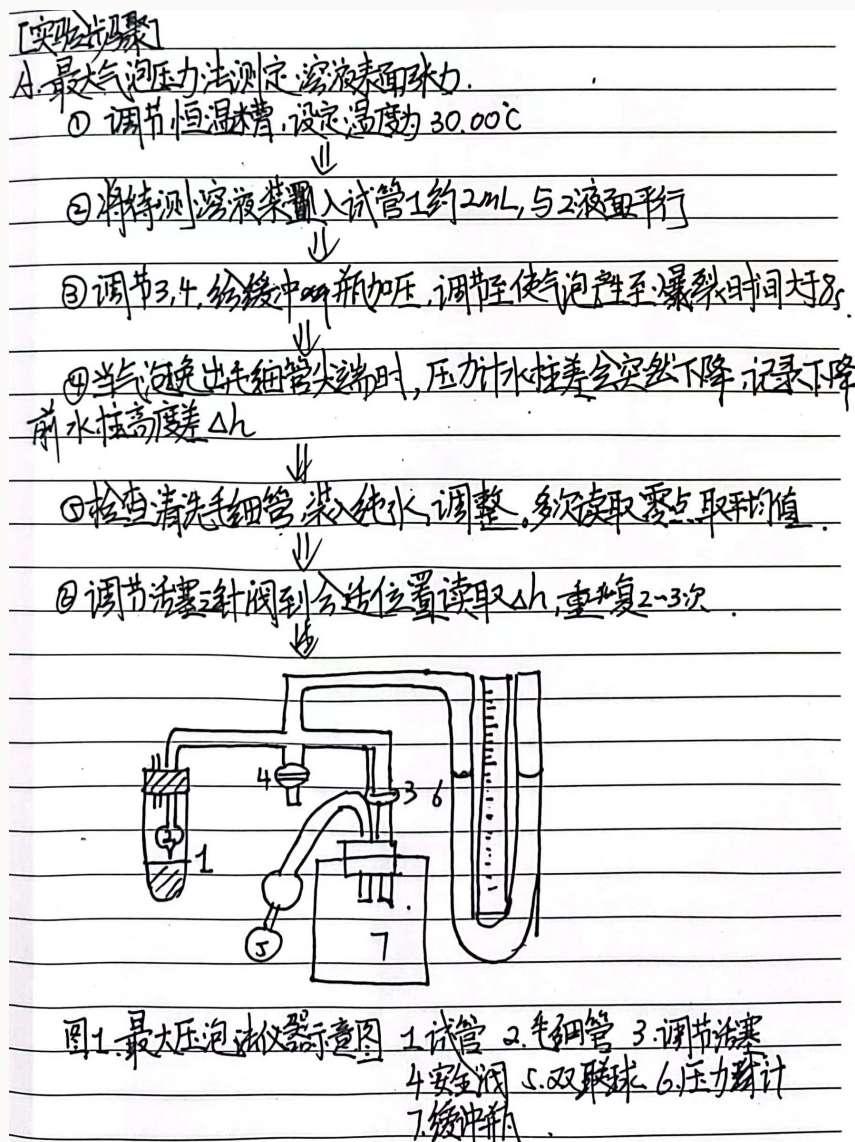 [实验步骤]
A.最大气泡压力法测定溶液表面张力.
① 调节恒温槽,设定温度为 30.00℃
⇓
②将待测溶液装置入试管1约2mL,与2液面平行
⇓
③调节3,4,给缓冲瓶加压,调节至使气泡产生至爆裂时间大于8s.
⇓
④当气泡逸出毛细管尖端时,压力计水柱差会突然下降,记录下降
前水柱高度差Δh
⇓
⑤检查清洗毛细管,装入纯水,调整。多次读取零点,取平均值.
⇓
⑥调节活塞针阀到合适位置读取Δh,重复2~3次.
⇓
4
3
6
2
1
5
7
图1.最大压泡法仪器示意图 1.试管 2.毛细管 3.调节活塞
4.安全阀 5.双联球 6.压力计
7.缓冲瓶.